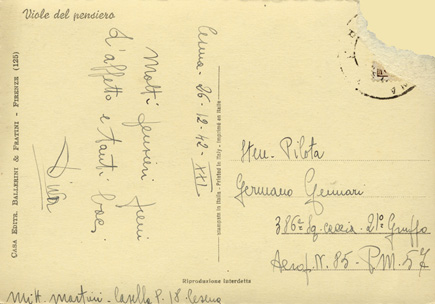 Viole del pensiero
CASA EDITR. BALLERINI & FRATINI - FIRENZE (125)
Molti pensieri pieni
d'affetto e tanti baci
Dina
Cesena - 26-12-42-XXI
Stampato in Italia - Printed in Italy - Imprimé en Italie
Sten. Pilota
Germano Gennari
386ª Sq. caccia - 21º Gruppo
Aerop. N. 85 - P.M. 57
Riproduzione interdetta
Mitt. Martini - Casella P. 18 Cesena